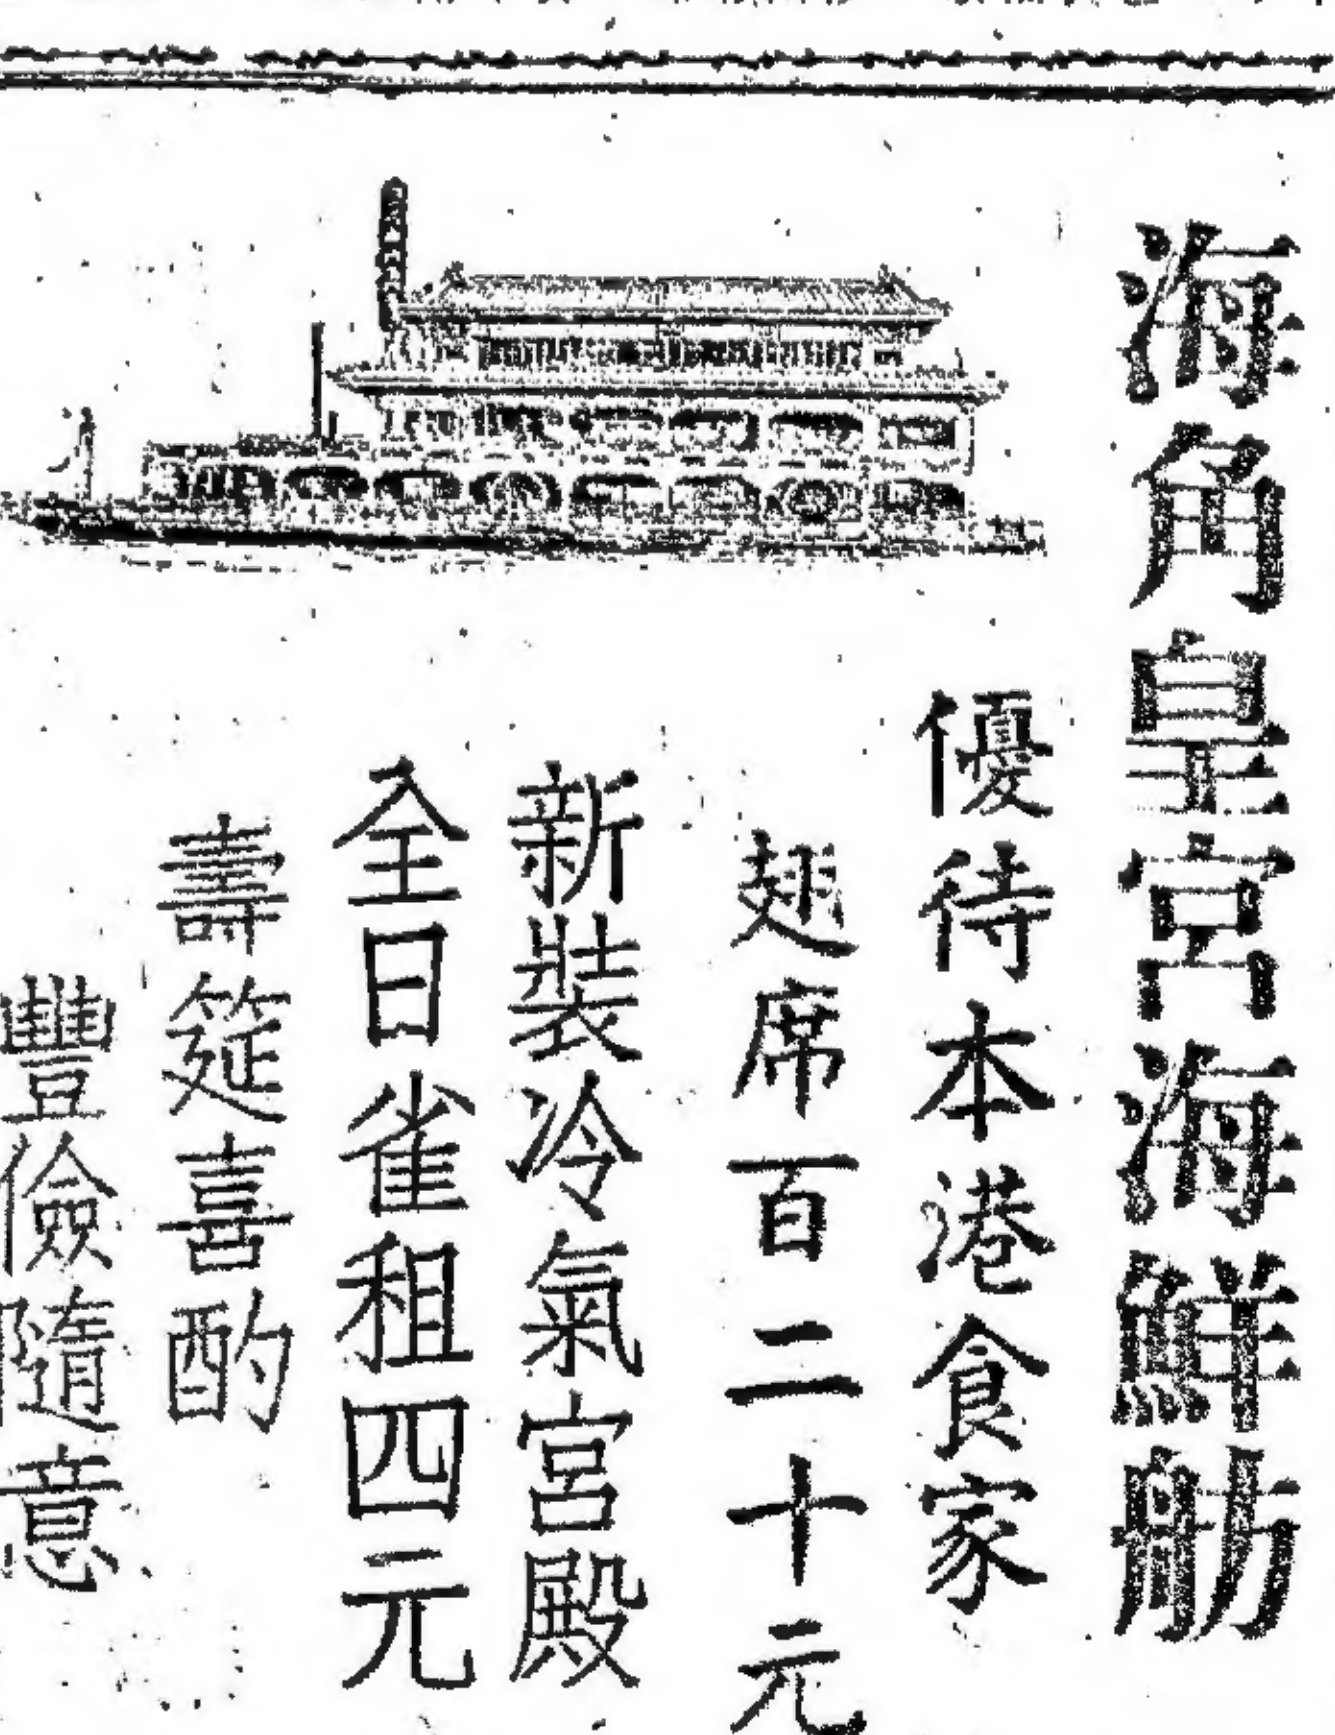 海角皇宮海鮮舫
優待本港食家
翅席百二十元
新裝冷氣宮殿
全日雀租四元
壽筵喜酌
豐儉隨意